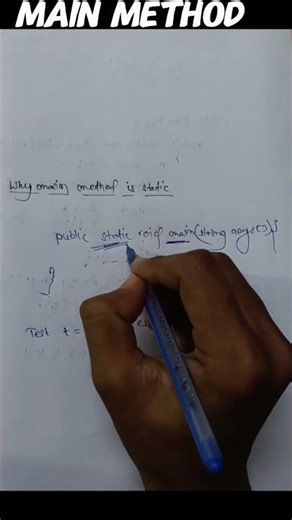 MAIN METHOD
Why main method is static
public static void main(string args[]){
}
Test t =